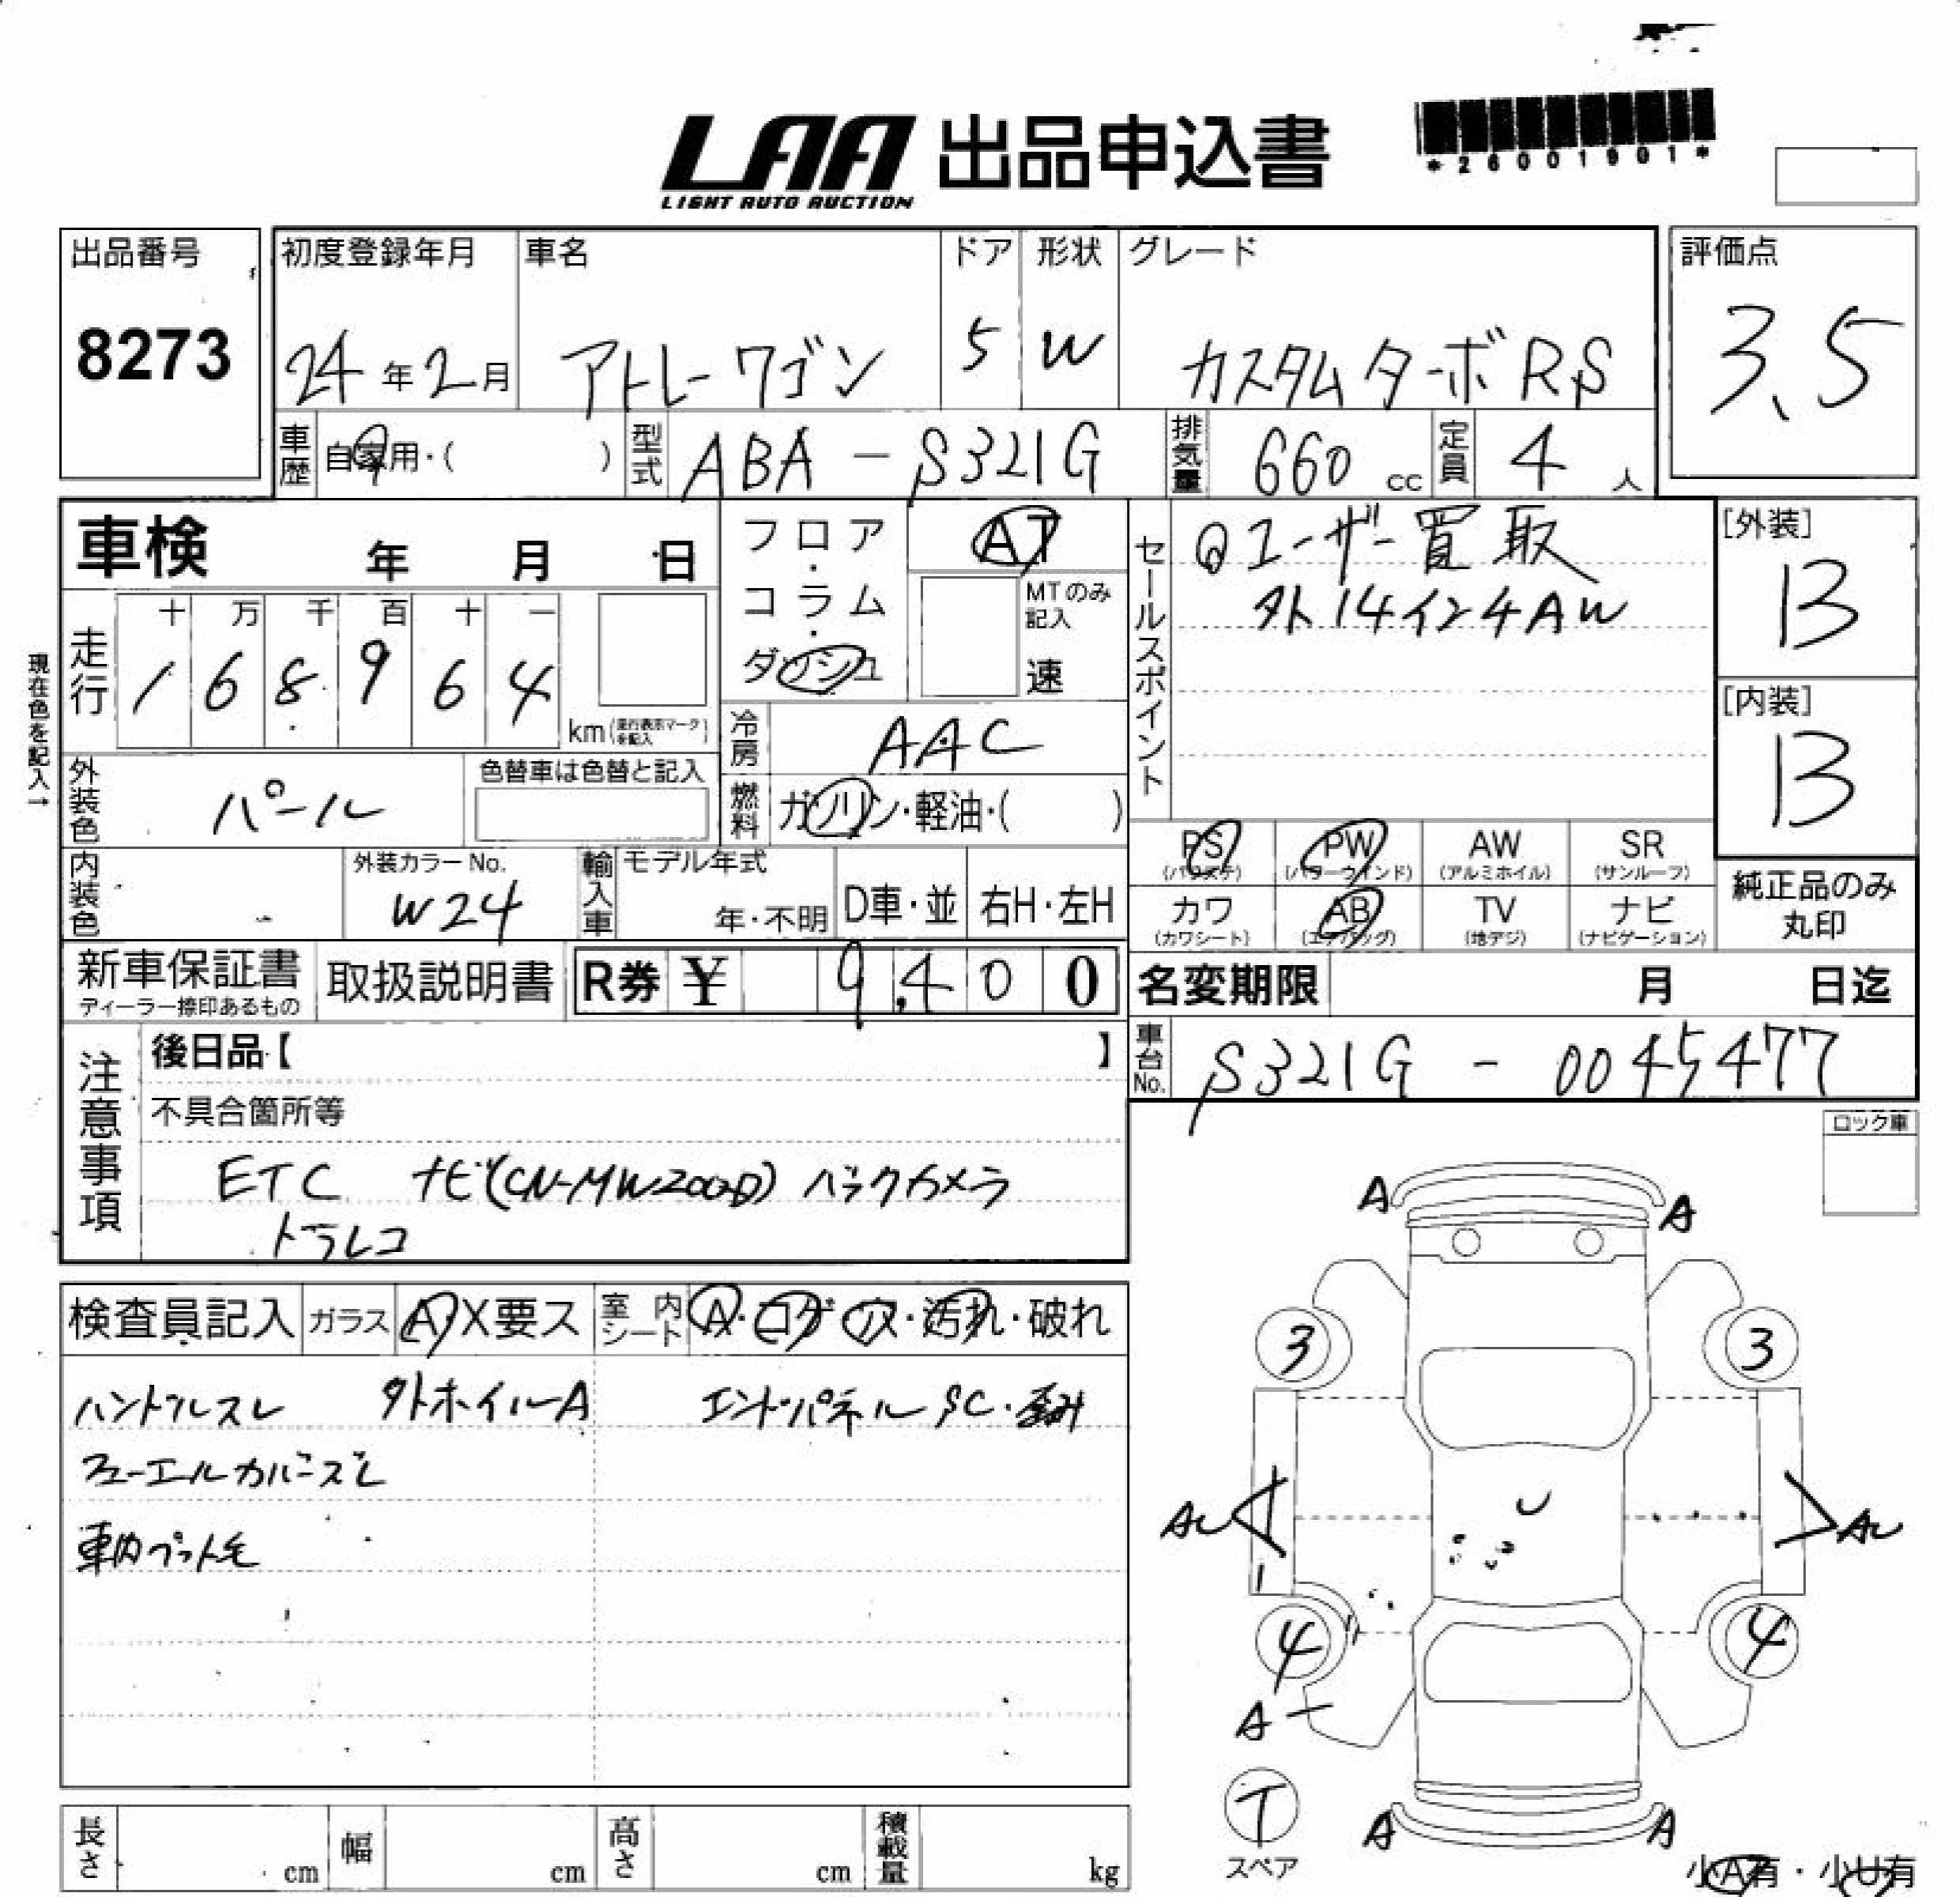 LAA 出品申込書
LIGHT AUTO AUCTION
*26001901*
出品番号
8273
初度登録年月
24年2月
車名
アトレーワゴン
ドア
5
形状
W
グレード
カスタムターボRS
評価点
3.5
車歴
自家用・( )
型式
ABA-S321G
排気量
660cc
定員
4人
車検 年 月 日
フロア・コラム・ダッシュ
AT
MTのみ記入
速
セールスポイント
Qユーザー買取
外14インチAW
[外装]
B
[内装]
B
現在色を記入→
走行
十 万 千 百 十 一
1 6 8 9 6 4
km(走行表示マークを記入)
冷房
AAC
外装色
パール
色替車は色替と記入
燃料
ガソリン・軽油・( )
内装色
外装カラーNo.
W24
輸入車
モデル年式
年・不明
D車・並
右H・左H
PS
(パワステ)
PW
(パワーウインド)
AW
(アルミホイル)
SR
(サンルーフ)
カワ
(カワシート)
AB
(エアバッグ)
TV
(地デジ)
ナビ
(ナビゲーション)
純正品のみ
丸印
新車保証書
ディーラー捺印あるもの
取扱説明書
R券 ¥ 9,400
名変期限 月 日迄
車台No.
S321G - 0045477
注意事項
後日品【 】
不具合箇所等
ETC ナビ(CN-MW200D) バックカメラ
ドラレコ
ロック車
検査員記入
ガラス
A X要ス
室内シート
A・コゲ・穴・汚れ・破れ
ハンドルスレ 外ホイルA エンドパネルSC・歪み
フューエルカバーズレ
車内ペット毛
A A
3 3
AU AU
4 4
A
T
スペア
A A
小A有・小U有
長さ cm
幅 cm
高さ cm
積載量 kg